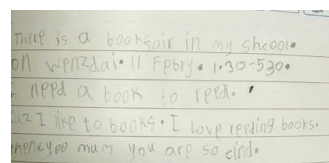 There is a bookfair in my shcool.
on wenzdai. 11 Febry. 1.30-530.
I need a book to reed.
cuz I like to books. I Love reeding books.
thenkyoo mum you are so cind.